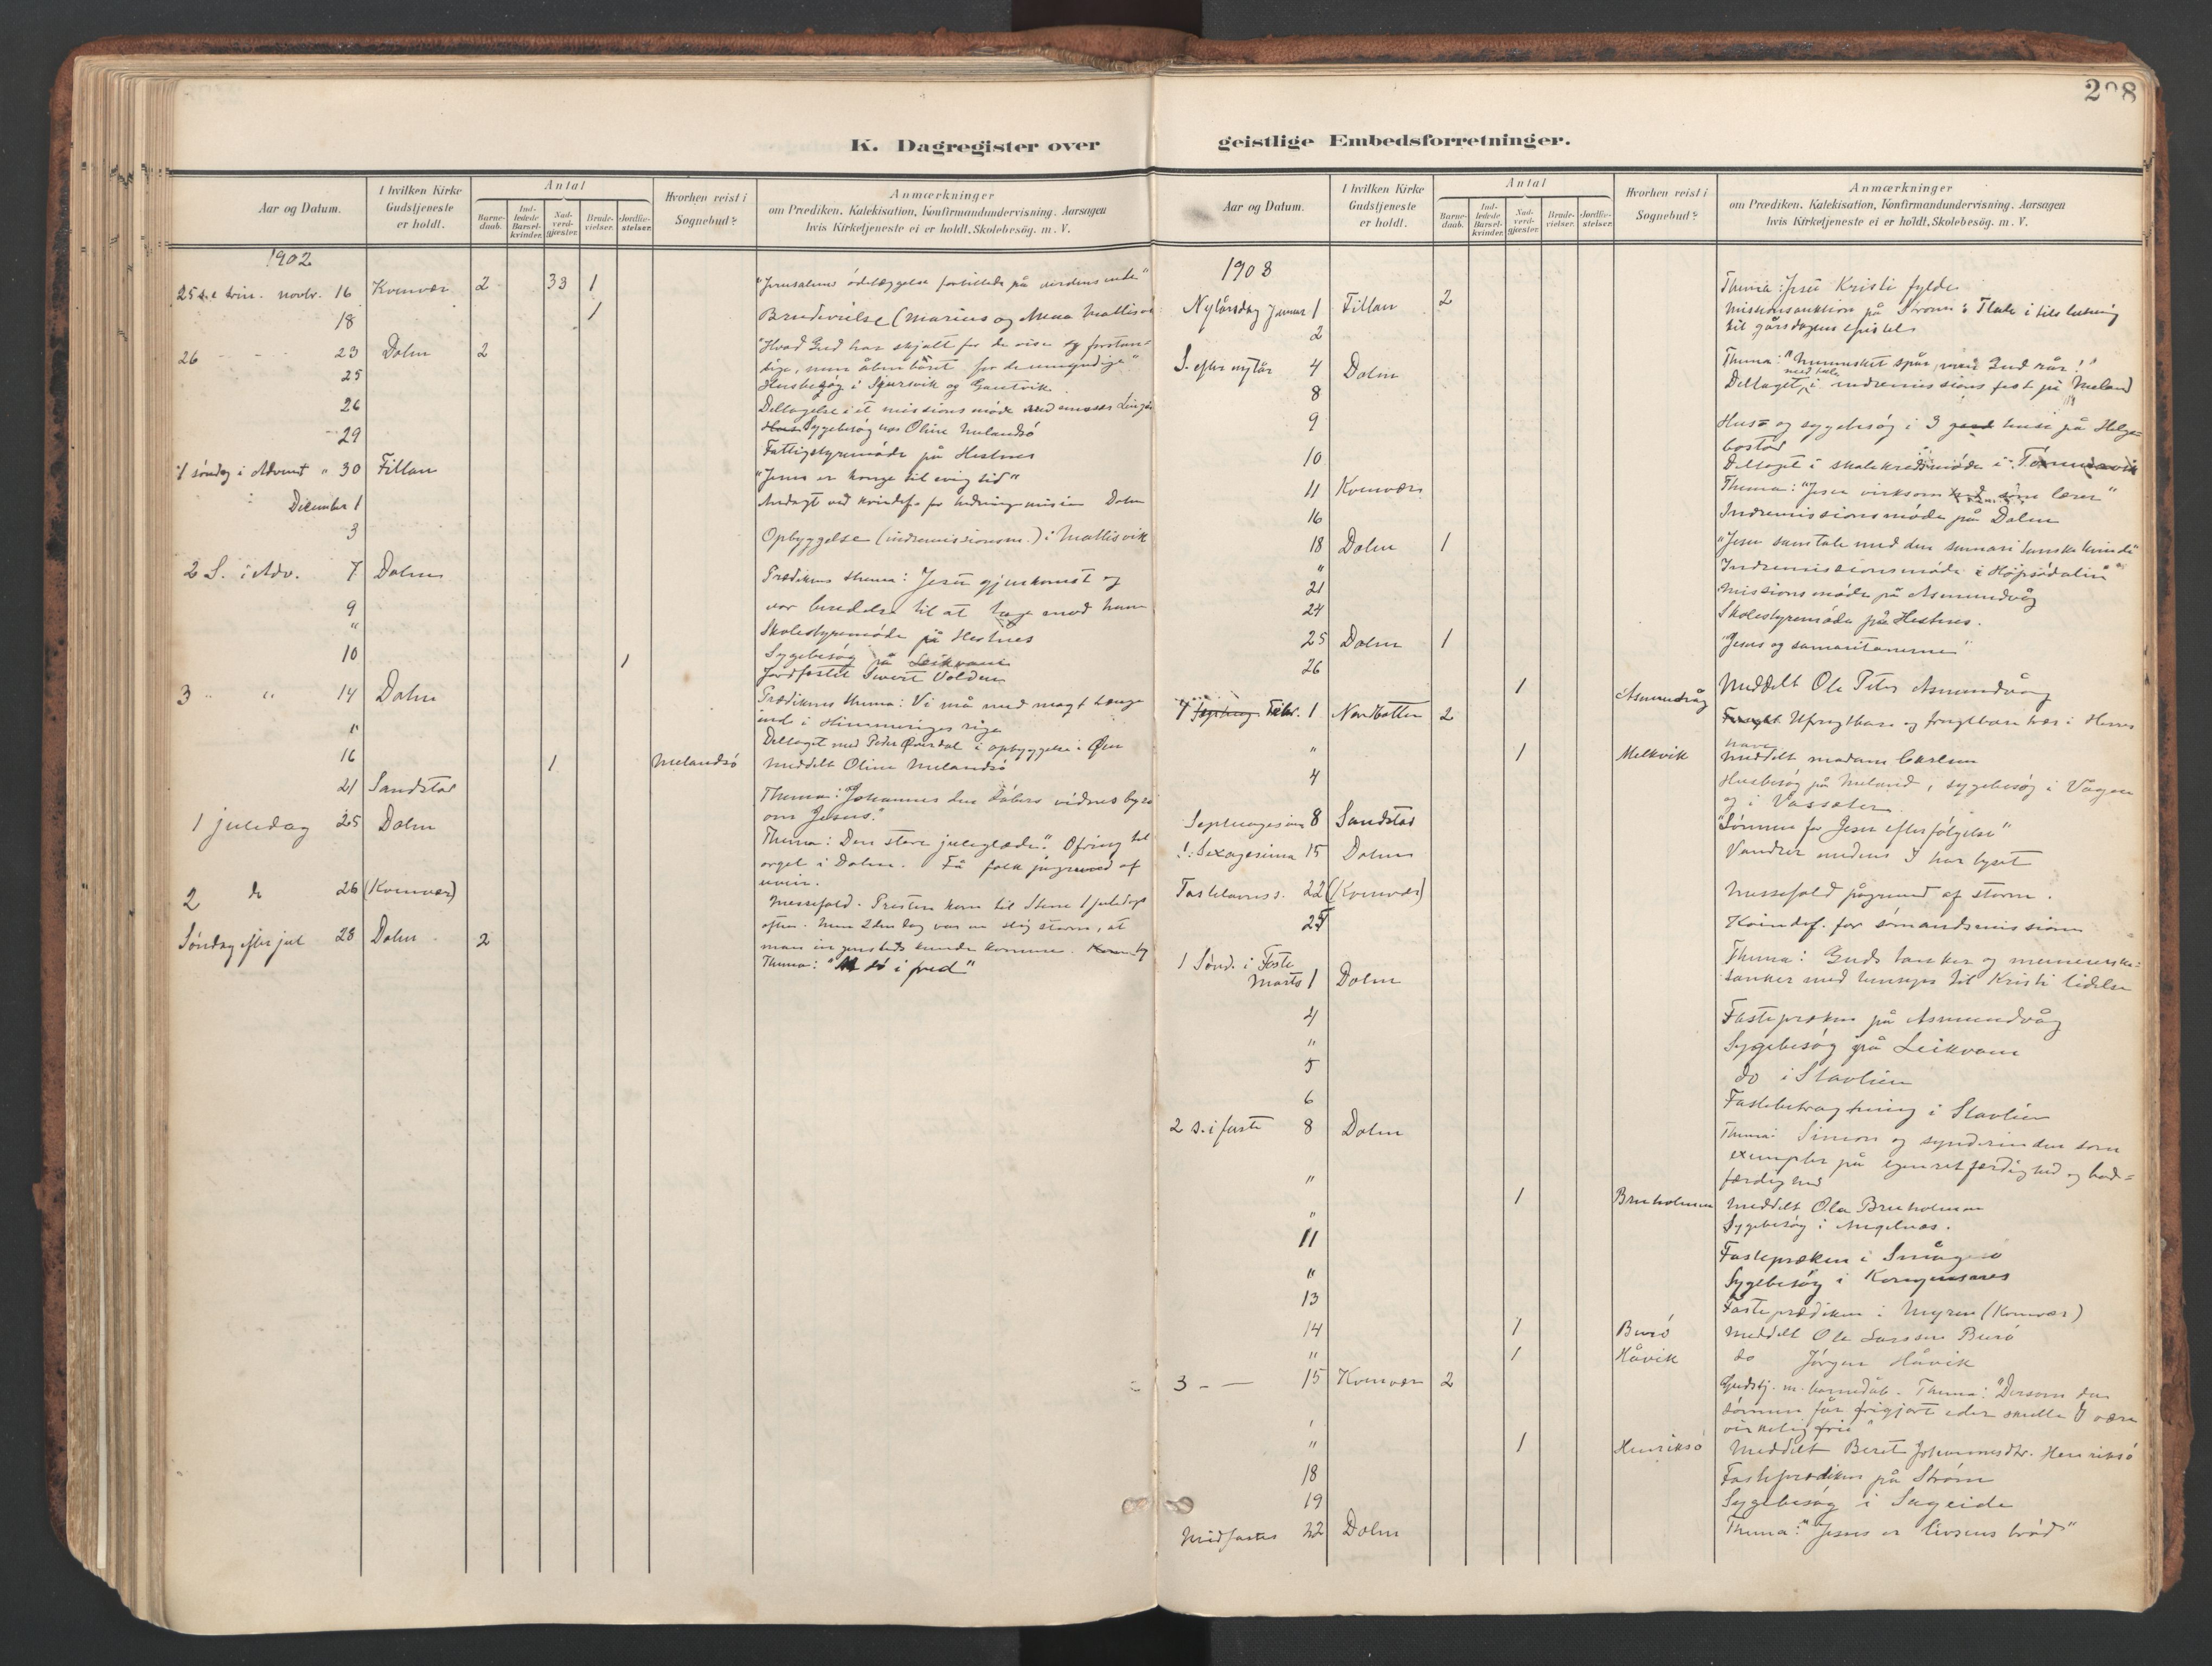 298
K. Dagregister over geistlige Embedsforretninger.
Aar og Datum.
I hvilken Kirke Gudstjeneste er holdt.
Antal
Barne-daab.
Ind-ledede Barsel-kvinder.
Nad-verd-gjæster.
Brude-vielser.
Jordfæ-stelser.
Hvorhen reist i Sognebud?
Anmærkninger
om Prædiken, Katekisation, Konfirmandundervisning. Aarsagen
hvis Kirketjeneste ei er holdt, Skolebesög. m. V.
1902
25 s. e. trin. novbr. 16 Kvenvær 2 33 1 "Jerusalems ödelæggelse forbillede på verdens ende"
18 1 Brudevielse (Marius og Anna Mattisvik
26 - - 23 Dolm 2 "Hvad Gud har skjult for de vise og forstan-
dige, men åbenbaret for de umyndige"
25 Husbesög i Sjursvik og Gautvik
26 Deltagelse i et missionsmöde
29 Sygebesög hos Oline Melandsö
Fattigstyremöde på Hestnes
1 söndag i Advent " 30 Fillan "Jesus er konge til evig tid"
December 1 Andagt ved kvindef. for hedningemission Dolm
3 Opbyggelse (indremissionsm.) i Mattisvik
2 S. i Adv. 7 Dolm Prædikens thema: Jesu gjenkomst og
vor beredelse til at tage mod ham
9 Skolestyremöde på Hestnes
" Sygebesög på Leikvam
10 1 Jordfestet Sivert Volden
3 " " 14 Dolm Prædikens thema: Vi må med magt trænge
ind i Himmeriges rige
" Deltaget med Peder Överdal i opbyggelse i Öen
16 1 Melandsö Meddelt Oline Melandsö
21 Sandstad Thema: Johannes den döbers vidnesbyrd
om Jesus."
1 juledag 25 Dolm Thema: Den store juleglæde". Ofring til
orgel i Dolm. Få folk pågrund af
uveir.
2 do 26 (Kvenvær) Messefald. Presten kom til Stene 1 juledags
aften. Men 2den dag var en slig storm, at
man ingensteds kunde komme.
Söndag efter jul 28 Dolm 2 Thema: "At dö i fred"
Aar og Datum.
I hvilken Kirke Gudstjeneste er holdt.
Antal
Barne-daab.
Ind-ledede Barsel-kvinder.
Nad-verd-gjæster.
Brude-vielser.
Jordfæ-stelser.
Hvorhen reist i Sognebud?
Anmærkninger
om Prædiken, Katekisation, Konfirmandundervisning. Aarsagen
hvis Kirketjeneste ei er holdt, Skolebesög. m. V.
1903
Nytårsdag Januar 1 Fillan 2 Thema: Jesu Kristi fylde
2 Missionsauktion på Ström: Tale i tilslutning
til gårsdagens epistel
S. efter nytår 4 Dolm Thema: "Mennesket spår, men Gud rår!"
8 Deltaget med tale i indremissions fest på Meland
9 Hus= og sygebesög i 3 huse på Helge=
bostad
10 Deltaget i skolekredsmöde i
11 Kvenvær Thema: "Jesu virksomhed som lærer"
16 Indremissionsmöde på Dolm
18 Dolm 1 "Jesu samtale med den samaritanske kvinde"
" Indremissionsmöde i Hopsödalen
21 Missionsmöde på Asmundvåg
24 Skolestyremöde på Hestnes.
25 Dolm 1 "Jesus og samaritanerne"
26 1 Asmundvåg Meddelt Ole Peter Asmundvåg
Febr. 1 Nordbotten 2 Ufrugtbare og frugtbare træer i Herrens
have
" 1 Melkvik Meddelt madam Carlsen
4 Husbesög på Meland, sygebesög i Vågen
og i Vassæter
Septuagesima 8 Sandstad "Lönnen for Jesu efterfölgelse"
S. Sexagesima 15 Dolm Vandrer medens I har lyset
Fastelavnss. 22 (Kvenvær) Messefald pågrund af storm.
25 Kvindef. for sömandsmissionen
1 Sönd. i Faste
Marts 1 Dolm Thema: Guds tanker og menneske=
tanker med hensyn til Kristi lidelse
4 Fastepræken på Asmundvåg
" Sygebesög på Leikvam
5 do i Stavlien
6 Fastebetragtning i Stavlien
2 s. i faste 8 Dolm Thema: Simon og synderinden som
exempler på egenretfærdighed og bod=
færdighed
" 1 Bruholmen Meddelt Ola Bruholmen
" Sygebesög i
11 Fasteprækен i Småge
" Sygebesög i Kongensvoll
13 Fasteprædiken i Myren (Kvenvær)
14 1 Burö Meddelt Ole Larssen Burö
" 1 Håvik do Jörgen Håvik
3 - - 15 Kvenvær 2 Gudstj. m. barnedåb. Thema: "Dersom da
sönnen får frigjort eder skulle I være
virkelig frie"
" 1 Henriksö Meddelt Beret Johannesdtr. Henriksö
18 Fasteprædiken på Ström
19 Sygebesög i Sageide
Midfaste 22 Dolm Thema: "Jesus er livsens bröd"